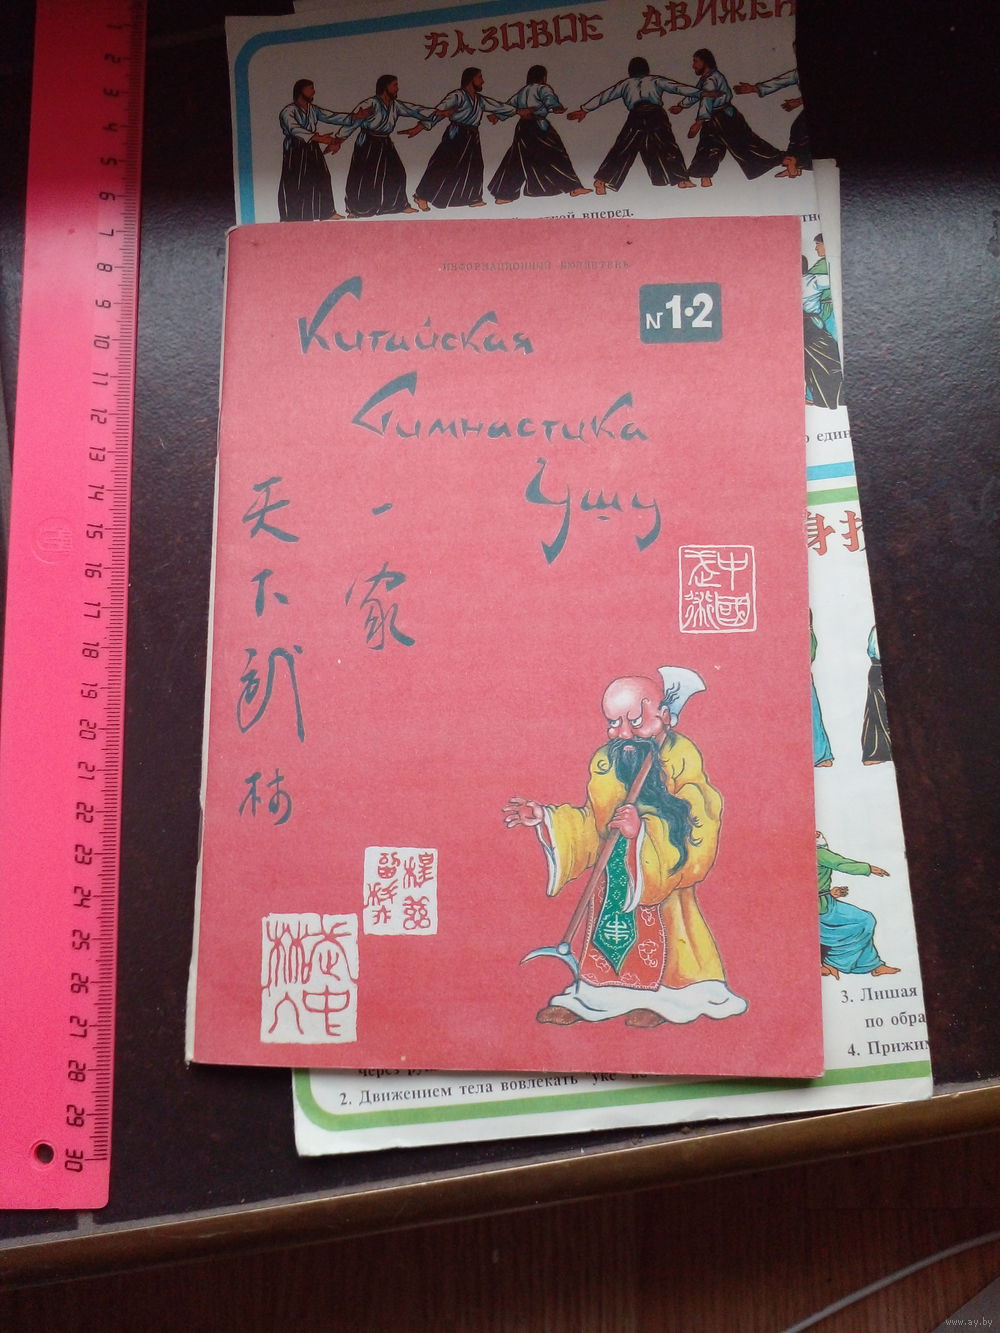 БАЗОВОЕ ДВИЖЕН
вперед.
ИНФОРМАЦИОННЫЙ БЮЛЛЕТЕНЬ
N 1·2
Китайская
Гимнастика
Ушу
天下武林
一家
中國武術
武中
林人
един
身
3. Лишая
по обра
4. Прижим
через
2. Движением тела вовлекать "уке"
1 2 3 4 5 6 7 8 9 10 11 12 13 14 15 16 17 18 19 20 21 22 23 24 25 26 27 28 29 30
www.ay.by